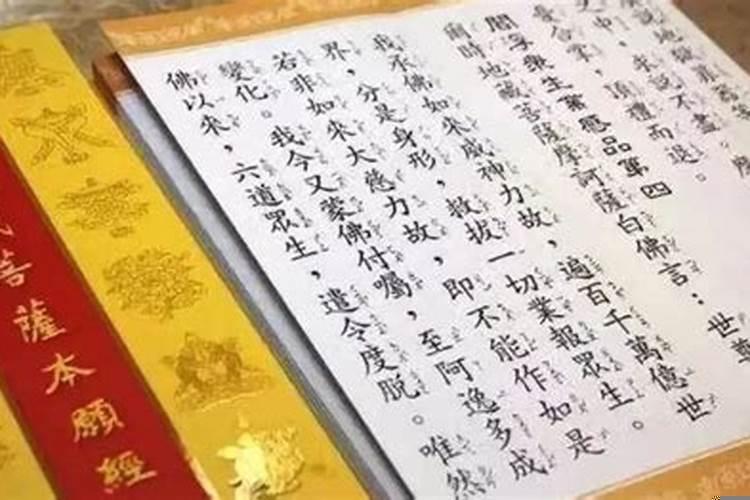 說地獄
中，求說不盡。
憂合掌，頂禮而退。
閻浮眾生業感品第四
爾時地藏菩薩摩訶薩白佛言：世尊
我承佛如來威神力故，遍百千萬億世
界，分是身形，救拔一切業報眾生。
若非如來大慈力故，即不能作如是
變化。我今又蒙佛付囑，至阿逸多成
佛以來，六道眾生，遣令度脫。唯然
菩薩本願經